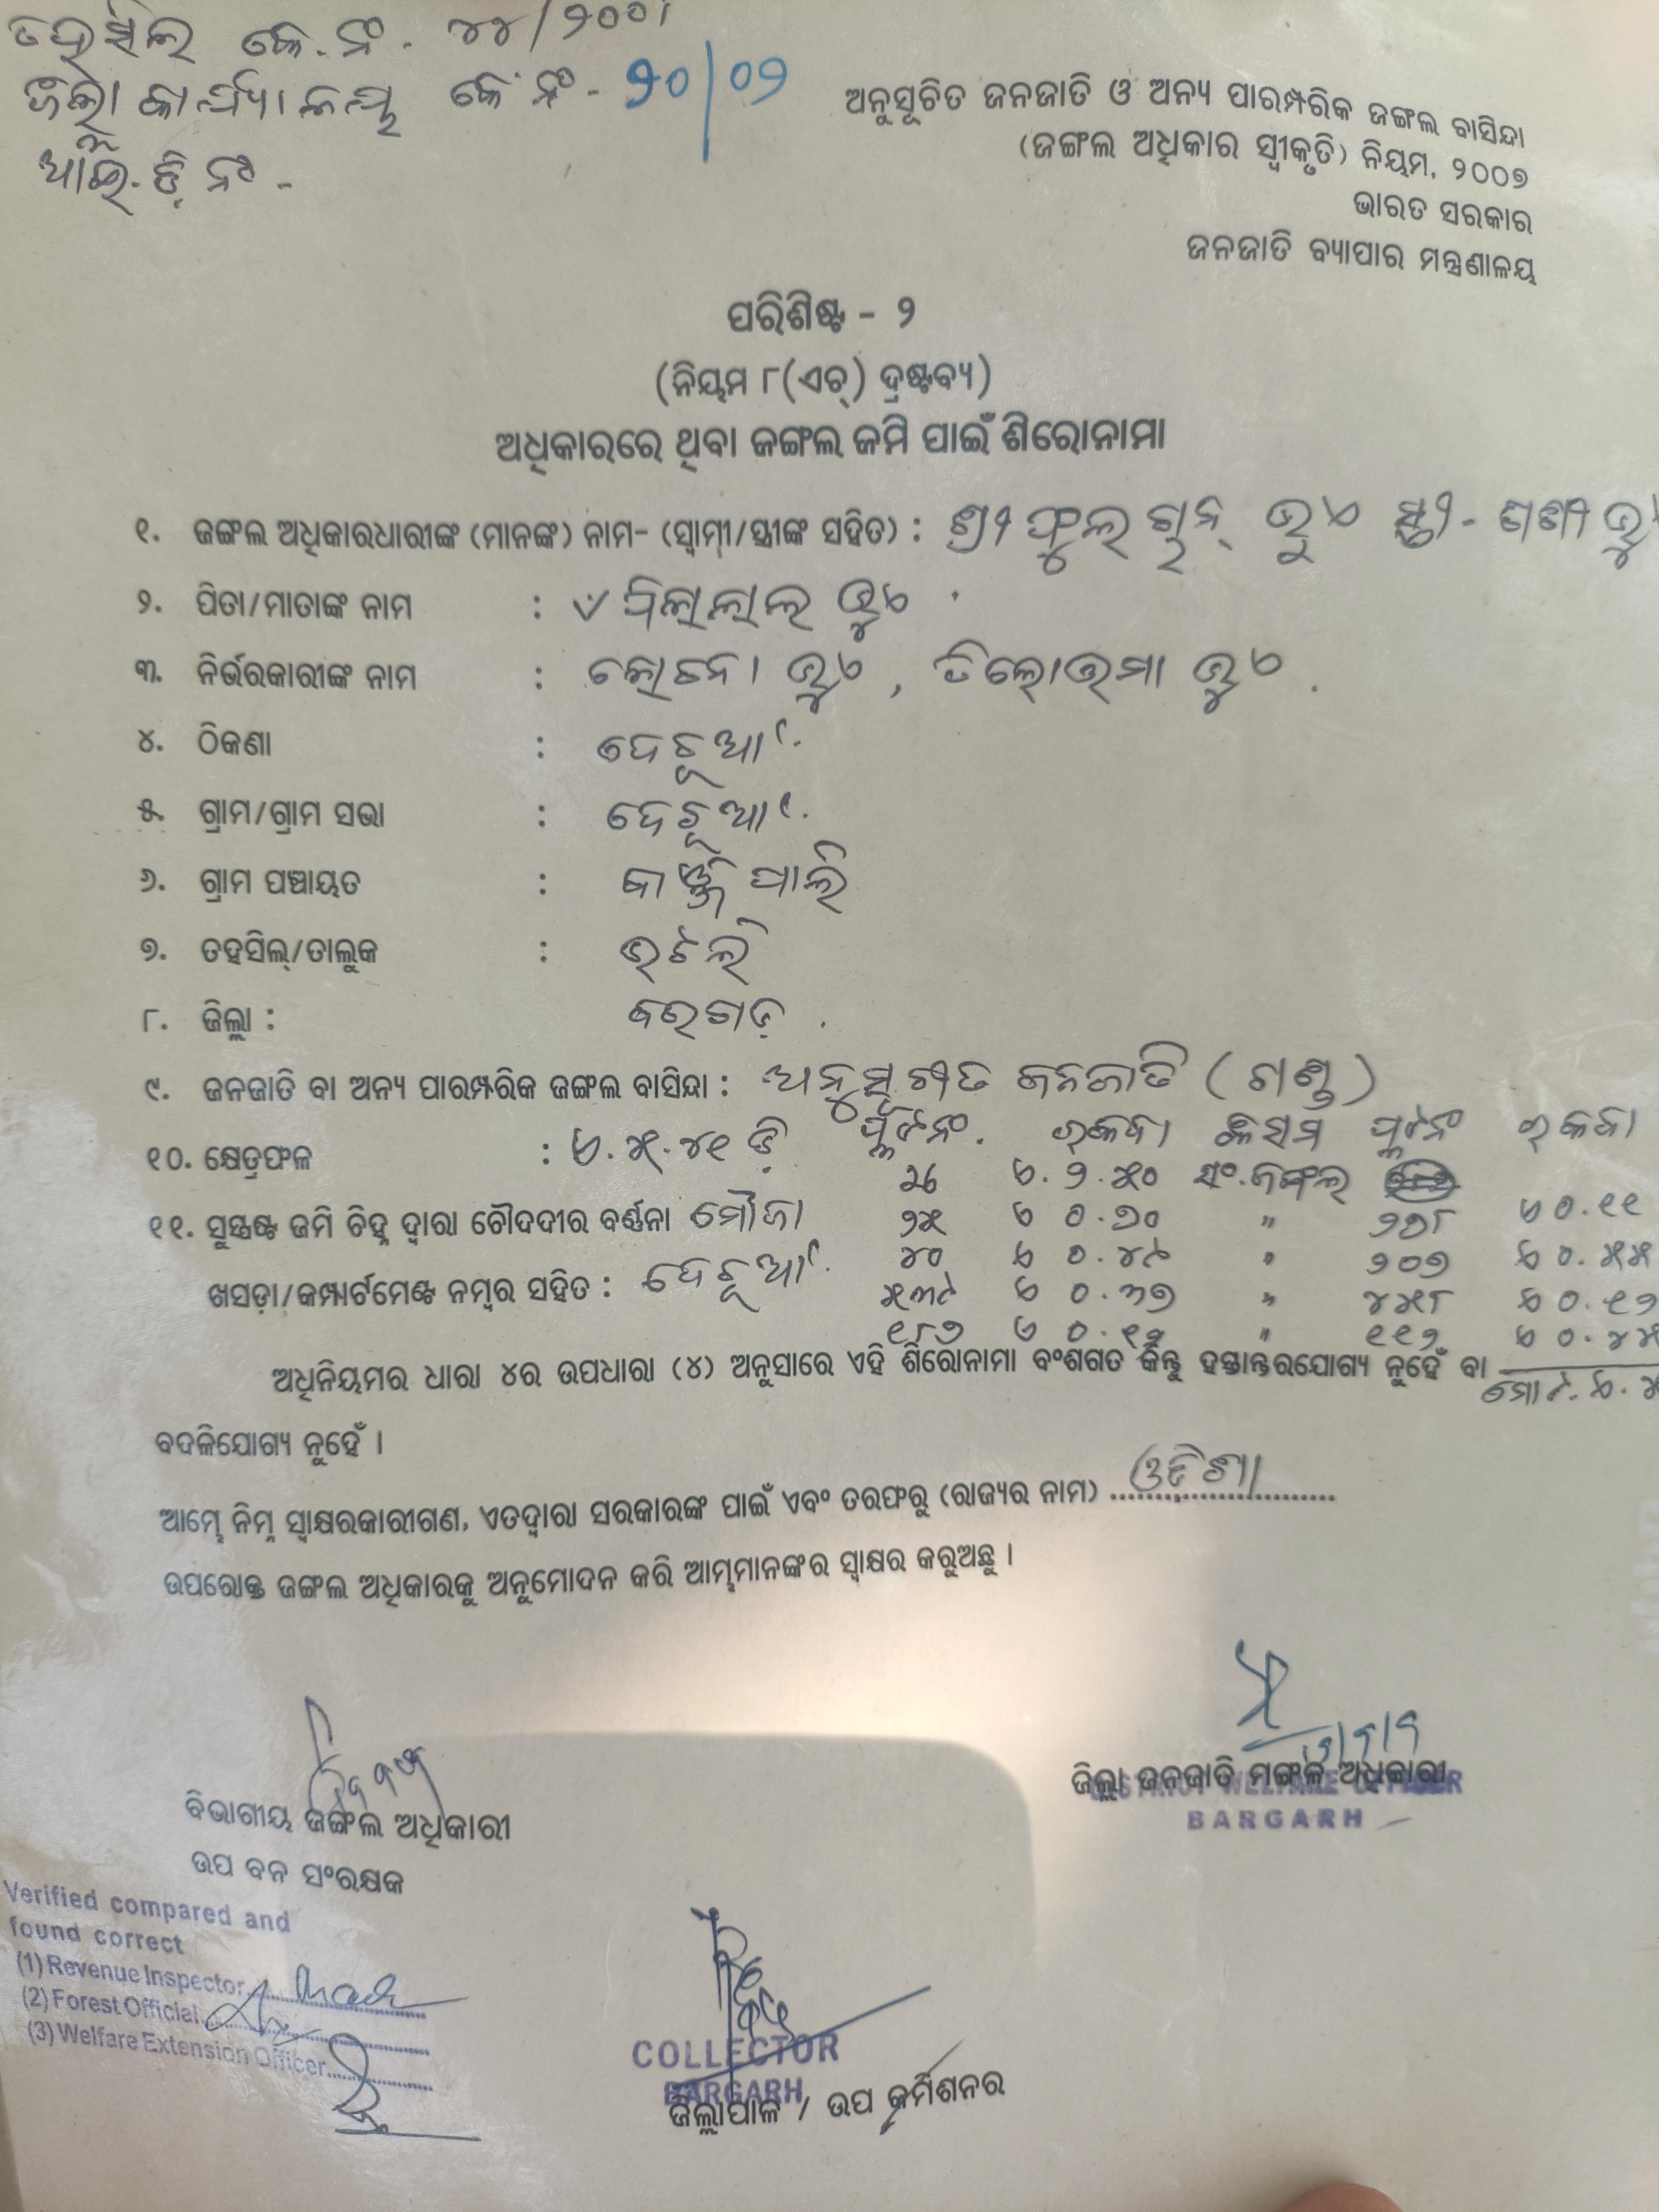 ତହସିଲ କେ.ନଂ. ୪୪/୨୦୦
ଜିଲ୍ଲା କାର୍ଯ୍ୟାଳୟ କେ ନଂ - ୨୦/୦୨
ଆଇ.ଡ଼ି ନଂ -
ଅନୁସୂଚିତ ଜନଜାତି ଓ ଅନ୍ୟ ପାରମ୍ପରିକ ଜଙ୍ଗଲ ବାସିନ୍ଦା
(ଜଙ୍ଗଲ ଅଧିକାର ସ୍ୱୀକୃତି) ନିୟମ, ୨୦୦୭
ଭାରତ ସରକାର
ଜନଜାତି ବ୍ୟାପାର ମନ୍ତ୍ରଣାଳୟ
ପରିଶିଷ୍ଟ - ୨
(ନିୟମ ୮(ଏଚ୍) ଦ୍ରଷ୍ଟବ୍ୟ)
ଅଧିକାରରେ ଥିବା ଜଙ୍ଗଲ ଜମି ପାଇଁ ଶିରୋନାମା
୧. ଜଙ୍ଗଲ ଅଧିକାରଧାରୀଙ୍କ (ମାନଙ୍କ) ନାମ- (ସ୍ୱାମୀ/ସ୍ତ୍ରୀଙ୍କ ସହିତ) : ଶ୍ରୀ ସ୍ତ୍ରୀ-
୨. ପିତା/ମାତାଙ୍କ ନାମ :
୩. ନିର୍ଭରକାରୀଙ୍କ ନାମ : , ତିଲୋତ୍ତମା
୪. ଠିକଣା : ଦେଚୂଆଁ.
୫. ଗ୍ରାମ/ଗ୍ରାମ ସଭା : ଦେଚୂଆଁ.
୬. ଗ୍ରାମ ପଞ୍ଚାୟତ : କାଞ୍ଜିପାଲି
୭. ତହସିଲ୍/ତାଲୁକ : ଭଟଲି
୮. ଜିଲ୍ଲା : ବରଗଡ଼ .
୯. ଜନଜାତି ବା ଅନ୍ୟ ପାରମ୍ପରିକ ଜଙ୍ଗଲ ବାସିନ୍ଦା : ଅନୁସୂଚୀତ ଜନଜାତି (ଗଣ୍ଡ)
୧୦. କ୍ଷେତ୍ରଫଳ : ଏ.୫.୪୧ ଡ଼ି ପ୍ଲଟନଂ. ରକବା କିସମ ପ୍ଲଟନଂ ରକବା
ଏ.୨.୫୦ ସଂ.ଜଙ୍ଗଲ
୧୧. ସୁସ୍ପଷ୍ଟ ଜମି ଚିହ୍ନ ଦ୍ୱାରା ଚୌଦଦୀର ବର୍ଣ୍ଣନା ମୌଜା ୨୫ ଏ ୦.୭୦ " ୨୭୮ ଏ ୦.୧୧
୪୦ ଏ ୦.୪୯ " ୨୦୭ ଏ ୦.୫୫
ଖସଡ଼ା/କମ୍ପାର୍ଟମେଣ୍ଟ ନମ୍ବର ସହିତ : ଦେଚୂଆଁ. ୫୩୯ ଏ ୦.୩୭ " ୪୫୮ ଏ ୦.୧୨
୧୮୭ ଏ ୦.୧୨ " ୧୧୨ ଏ ୦.୪୫
ଅଧିନିୟମର ଧାରା ୪ର ଉପଧାରା (୪) ଅନୁସାରେ ଏହି ଶିରୋନାମା ବଂଶଗତ କିନ୍ତୁ ହସ୍ତାନ୍ତରଯୋଗ୍ୟ ନୁହେଁ ବା
ମୋଟ.ଏ.
ବଦଳିଯୋଗ୍ୟ ନୁହେଁ ।
ଆମ୍ଭେ ନିମ୍ନ ସ୍ୱାକ୍ଷରକାରୀଗଣ, ଏତଦ୍ୱାରା ସରକାରଙ୍କ ପାଇଁ ଏବଂ ତରଫରୁ (ରାଜ୍ୟର ନାମ) ଓଡିଶା
ଉପରୋକ୍ତ ଜଙ୍ଗଲ ଅଧିକାରକୁ ଅନୁମୋଦନ କରି ଆମ୍ଭମାନଙ୍କର ସ୍ୱାକ୍ଷର କରୁଅଛୁ ।
ଜିଲ୍ଲା ଜନଜାତି ମଙ୍ଗଳ ଅଧିକାରୀ
DISTRICT WELFARE OFFICER
BARGARH
ବିଭାଗୀୟ ଜଙ୍ଗଲ ଅଧିକାରୀ
ଉପ ବନ ସଂରକ୍ଷକ
Verified compared and
found correct
(1) Revenue Inspector
(2) Forest Official
(3) Welfare Extension Officer
COLLECTOR
BARGARH
ଜିଲ୍ଲାପାଳ / ଉପ କମିଶନର